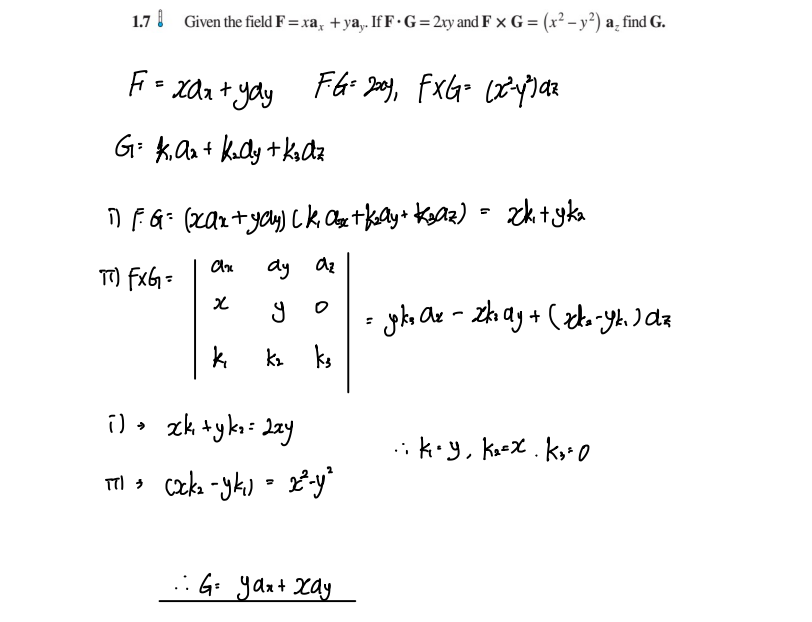 1.7 Given the field F = xaₓ + yaᵧ. If F · G = 2xy and F × G = (x² – y²) a_z find G.
F = xaₓ + yaᵧ F·G = 2xy, F×G = (x²-y²)a_z
G = k₁aₓ + k₂aᵧ + k₃a_z
i) F·G = (xaₓ + yaᵧ)(k₁aₓ + k₂aᵧ + k₃a_z) = xk₁ + yk₂
ii) F×G = | aₓ aᵧ a_z |
| x y 0 | = yk₃aₓ - xk₃aᵧ + (xk₂-yk₁)a_z
| k₁ k₂ k₃ |
i) → xk₁ + yk₂ = 2xy
∴ k₁ = y, k₂ = x. k₃ = 0
ii) → (xk₂ - yk₁) = x²-y²
∴ G = yaₓ + xaᵧ